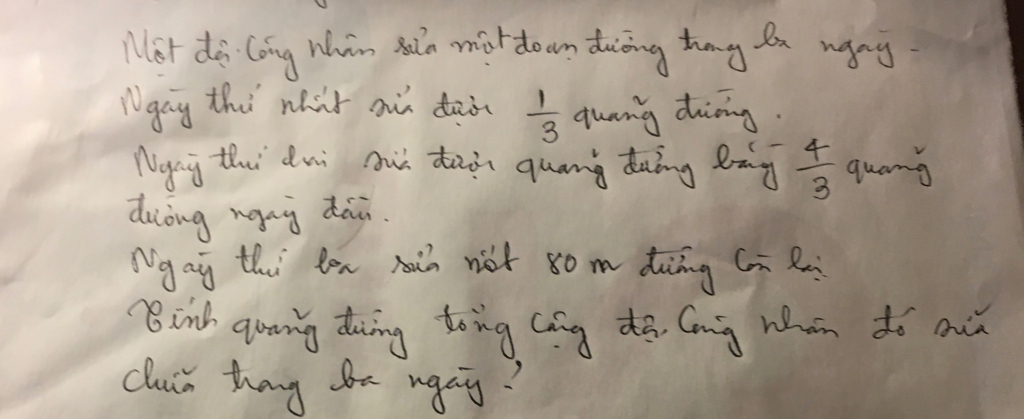 Một đội công nhân sửa một đoạn đường trong ba ngày.
Ngày thứ nhất sửa được 1/3 quãng đường.
Ngày thứ hai sửa được quãng đường bằng 4/3 quãng
đường ngày đầu.
Ngày thứ ba sửa nốt 80 m đường còn lại.
Tính quãng đường tổng cộng đội công nhân đó sửa
chữa trong ba ngày?